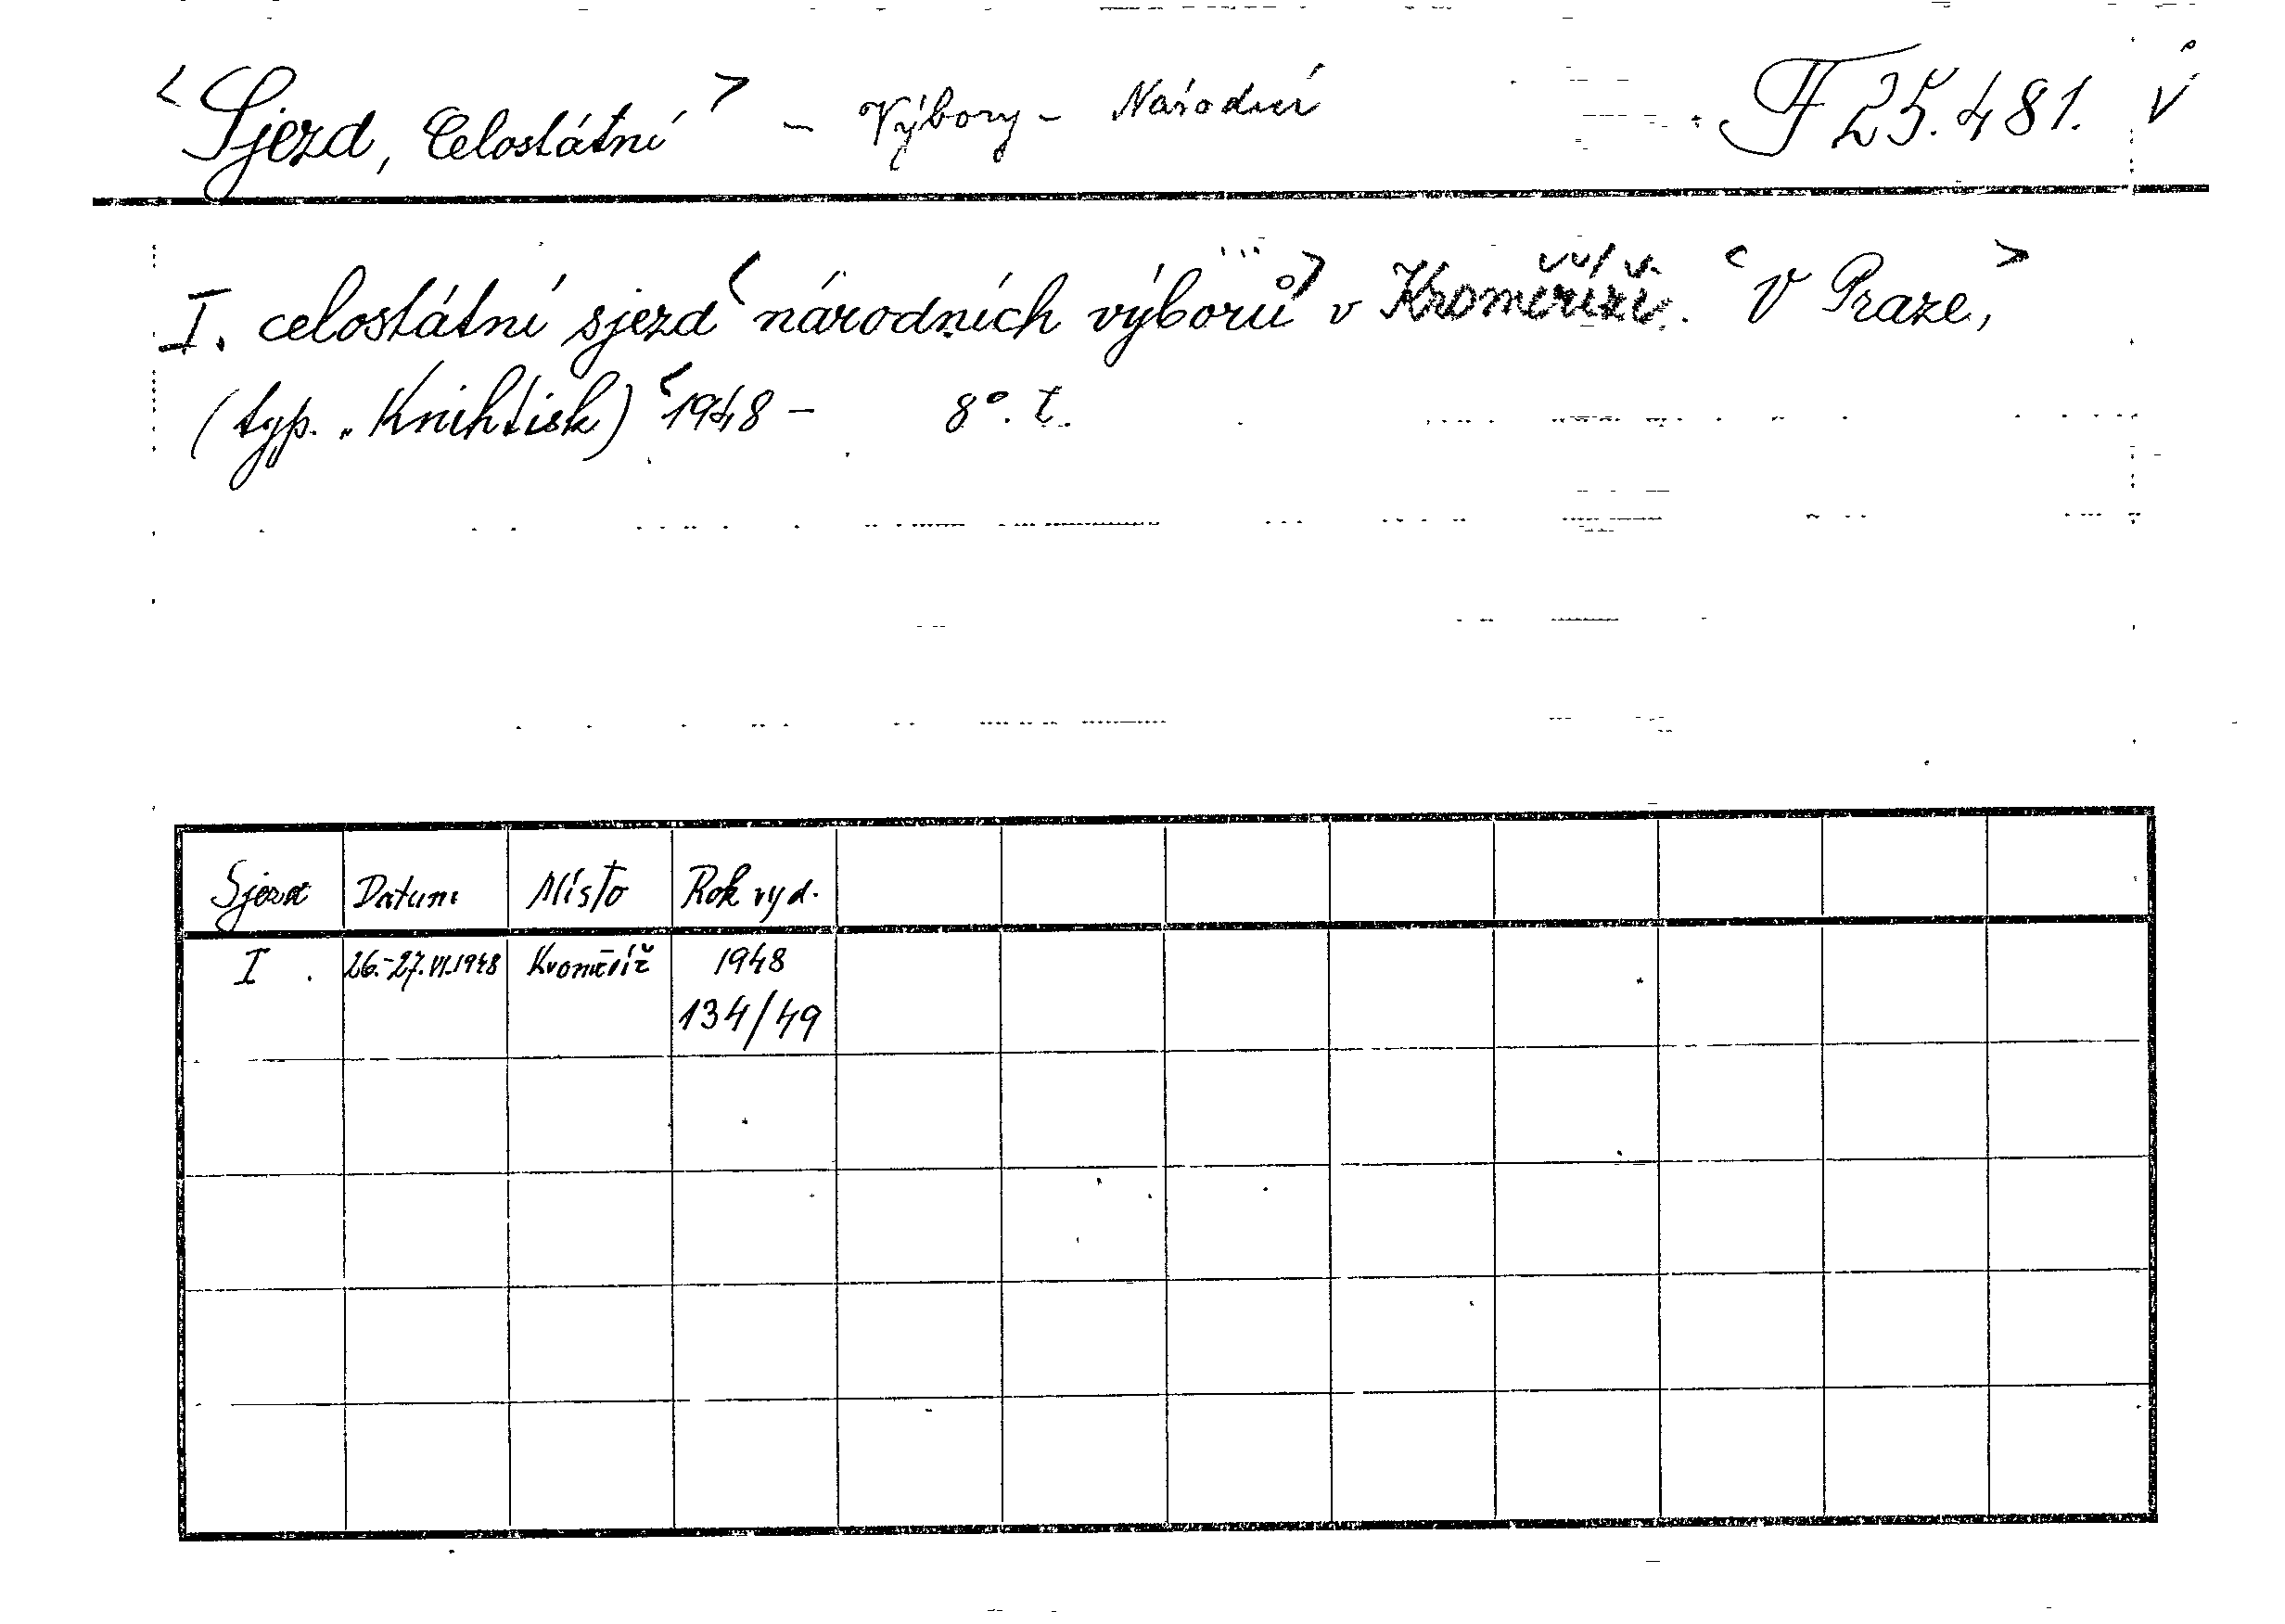 <Sjezd, Celostátní> - Výbory - Národní F 25.481. V
I. celostátní sjezd <národních výborů> v Kroměříži. <V Praze,>
(typ. „Knihtisk) <1948 - 8°. t.
Sjezd Datum Místo Rok vyd.
I. 26.-27.VI.1948 Kroměříž 1948
134/49